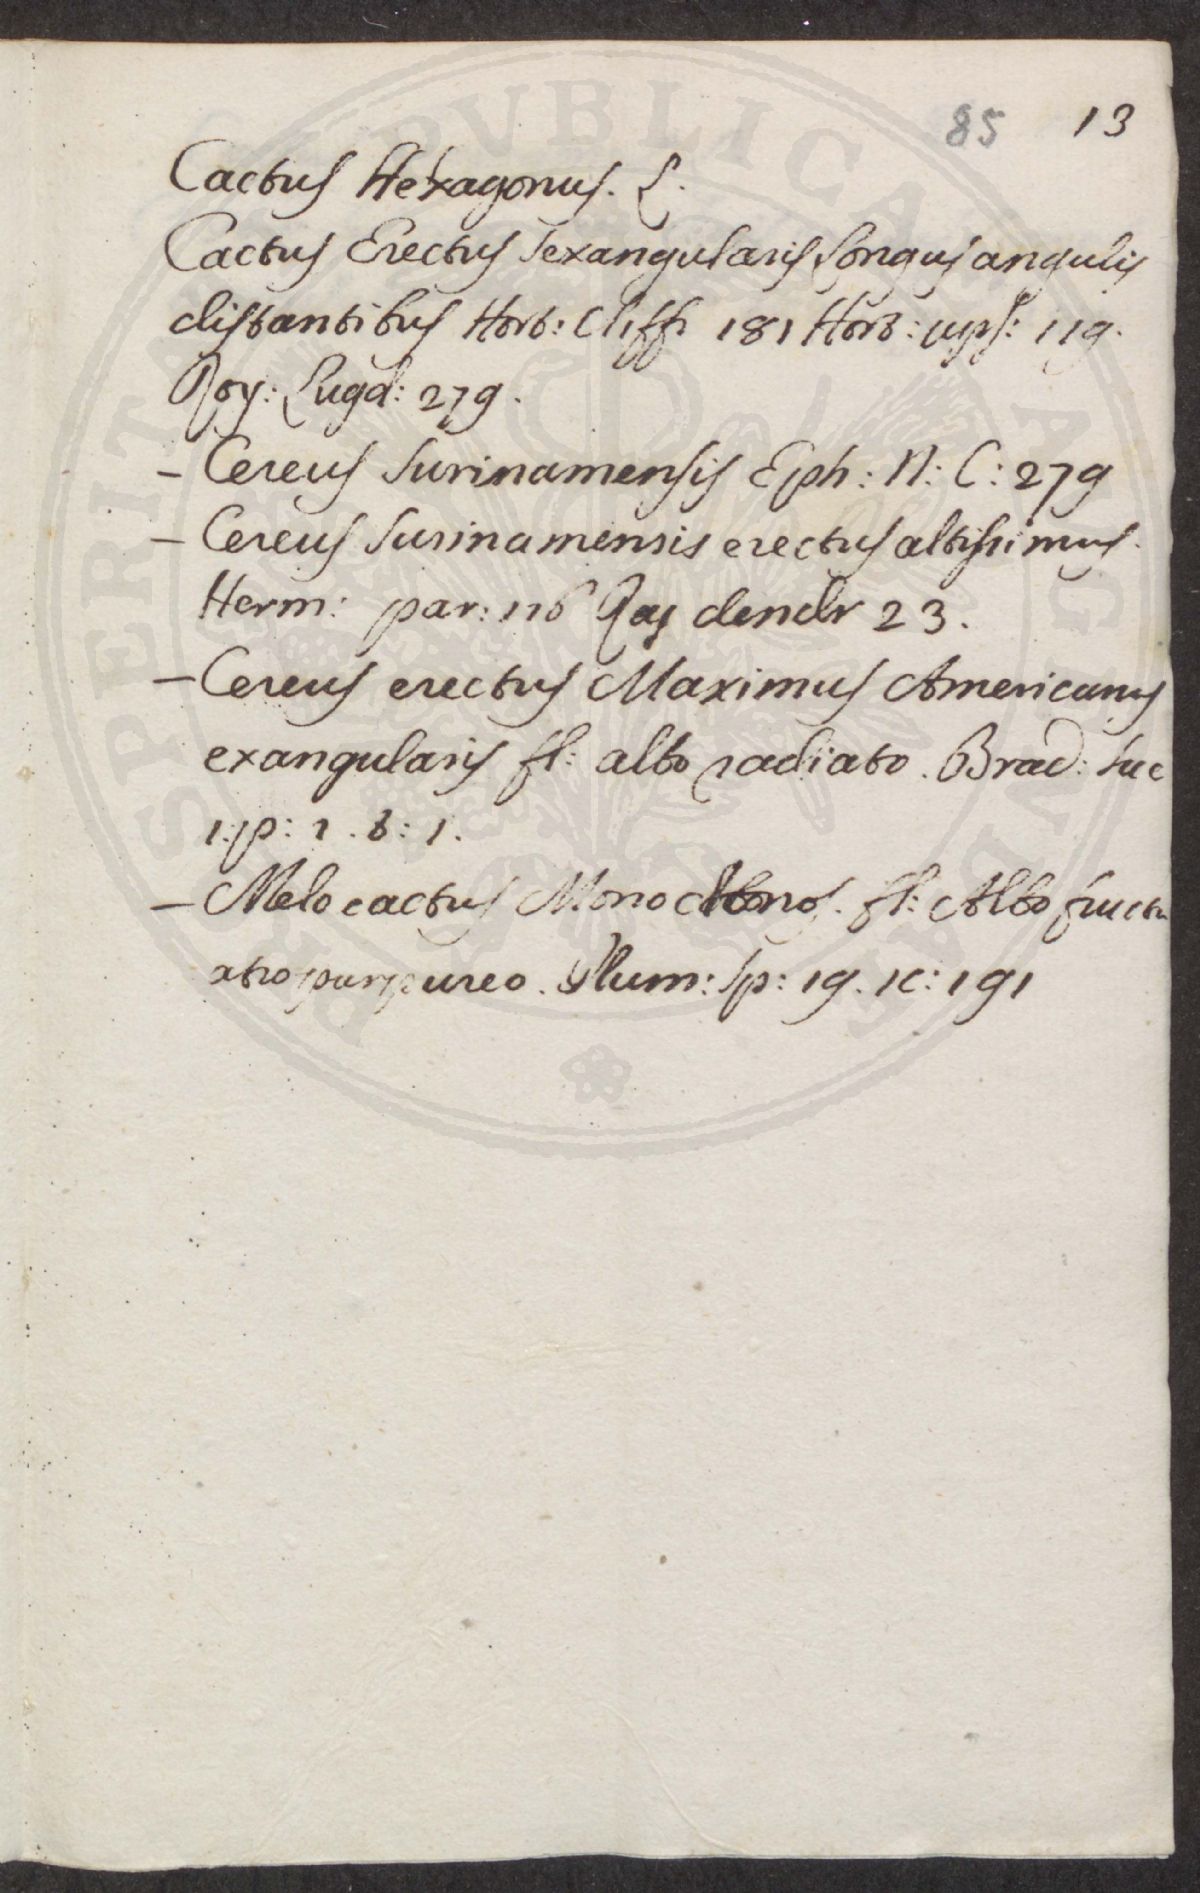 85 13
Cactus Hexagonus. L.
Cactus Erectus sexangularis Longus angulis
distantibus Hort: Cliff: 181 Hort: ups: 119.
Roy: Lugd: 279.
– Cereus Surinamensis Eph: N: C: 279
– Cereus Surinamensis erectus altissimus.
Herm: par: 116 Raj dendr 23.
– Cereus erectus Maximus Americanus
exangularis fl: albo radiato. Brad: suc
1: p: 1. t: 1.
– Melocactus fl: Albo fructu
atropurpureo. Plum: Sp: 19. ic: 191